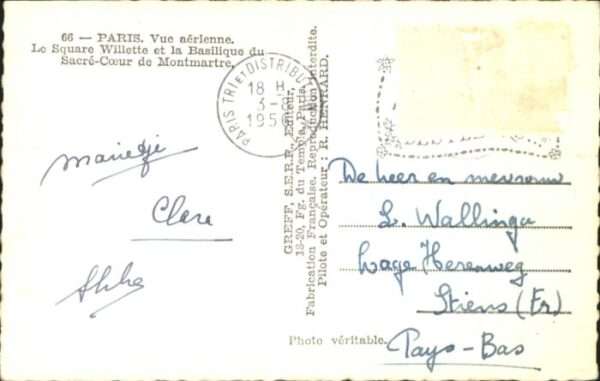 66 — PARIS. Vue aérienne.
Le Square Willette et la Basilique du
Sacré-Cœur de Montmartre.
PARIS TRI et DISTRIBU
18 H
3-
195
Mariedji
Clara
GREFF, S.E.R.P., Editeur,
18-20, Fg. du Temple, Paris.
Fabrication Française. Reproduction interdite.
Pilote et Opérateur : R. HENRARD.
De heer en mevrouw
L. Wallinga
Lage Herenweg
Stiens (Fr)
Pays-Bas
Photo véritable.